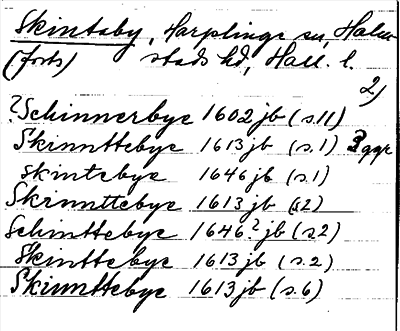 Skintaby, Harplinge sn, Halm-
(forts) stads hd, Hall. l.
2)
?Schinnerbye 1602 jb (s.11)
Skinnttebye 1613 jb (s.1) 3 ggr
Skintebye 1646 jb (s.1)
Skrinnttebye 1613 jb (s2)
Schinttebye 1646? jb (s.2)
Skinttebye 1613 jb (s.2)
Skinnttebye 1613 jb (s.6)